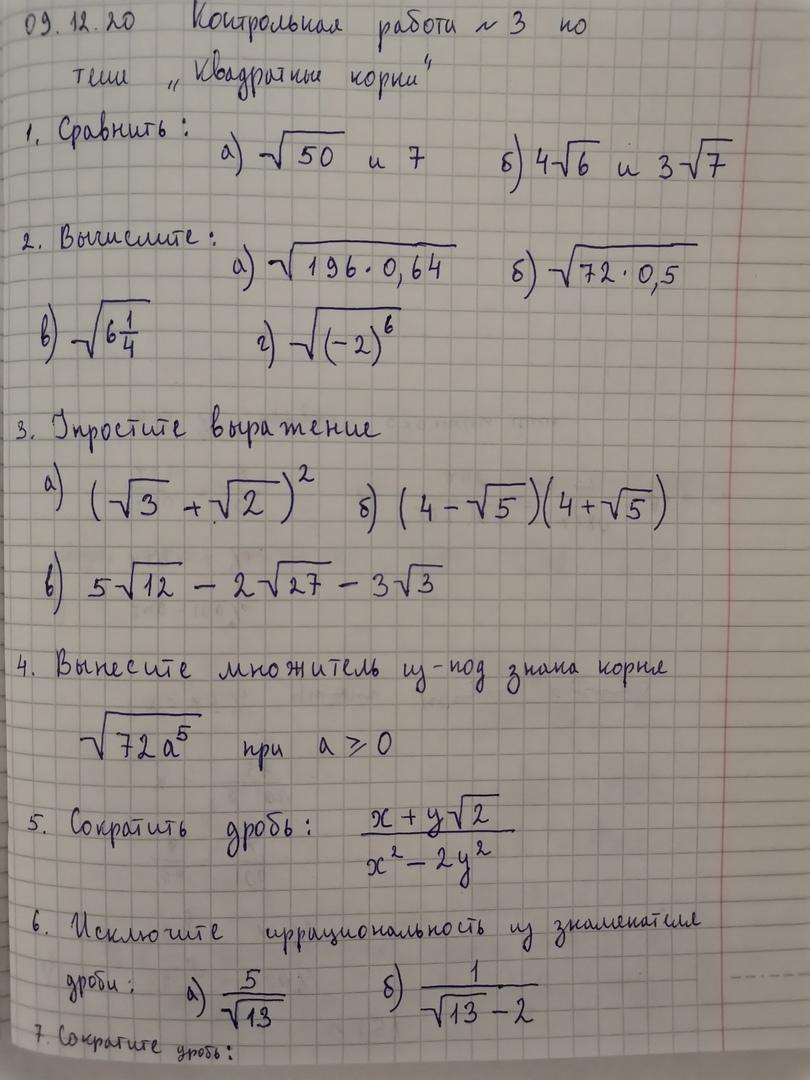 09.12.20 Контрольная работа ~ 3 по
теме „Квадратные корни“
1. Сравнить: а) √50 и 7 б) 4√6 и 3√7
2. Вычислите: а) √(196·0,64) б) √(72·0,5)
в) √(6 1/4) г) √((-2)^6)
3. Упростите выражение
а) (√3 + √2)² б) (4-√5)(4+√5)
в) 5√12 - 2√27 - 3√3
4. Вынесите множитель из-под знака корня
√(72a⁵) при a ≥ 0
5. Сократить дробь: (x + y√2)/(x² - 2y²)
6. Исключите иррациональность из знаменателя
дроби: а) 5/√13 б) 1/(√13 - 2)
7. Сократите дробь: